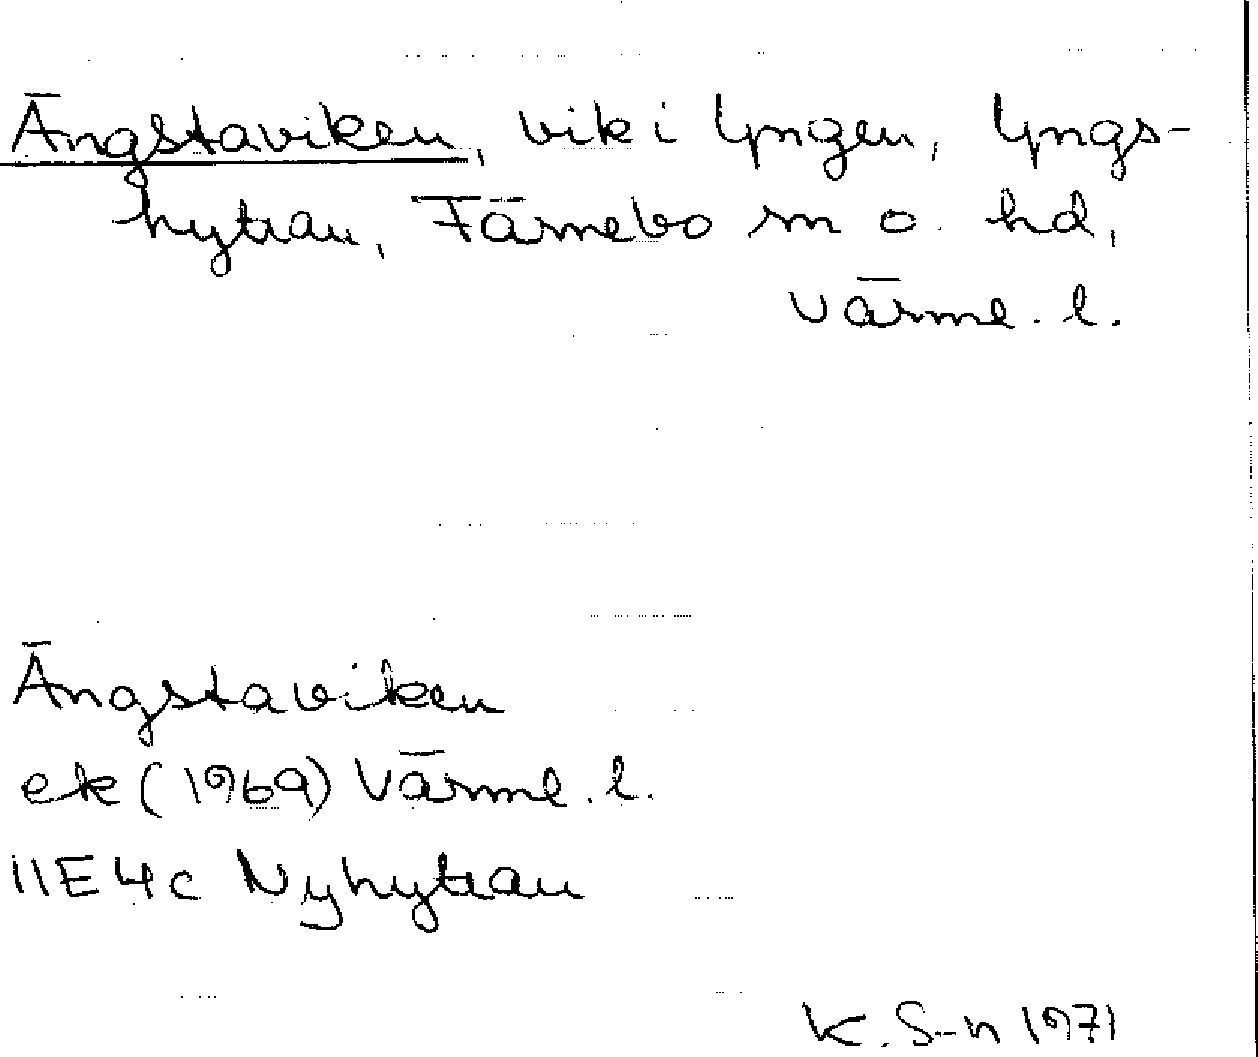 Ängstaviken, vik i Yngen, Yngs-
hyttan, Färnebo sn o. hd,
Värml. l.
Ängstaviken
ek (1969) Värml. l.
11E4c Nyhyttan
K. S-n 1971